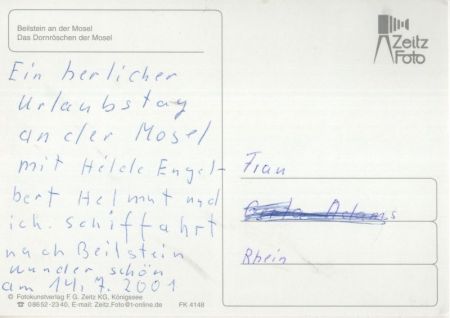 Beilstein an der Mosel
Das Dornröschen der Mosel
Zeitz
Foto
Ein herlicher
Urlaubstag
an der Mosel
mit Hilde Engel-
bert Helmut und
ich. Schiffahrt
nach Beilstein
wunder schön
am 14. 7. 2001
Frau
Adams
Rhein
© Fotokunstverlag F. G. Zeitz KG, Königssee
☎ 0 86 52 - 23 40, E-Mail: Zeitz.Foto@t-online.de FK 4148